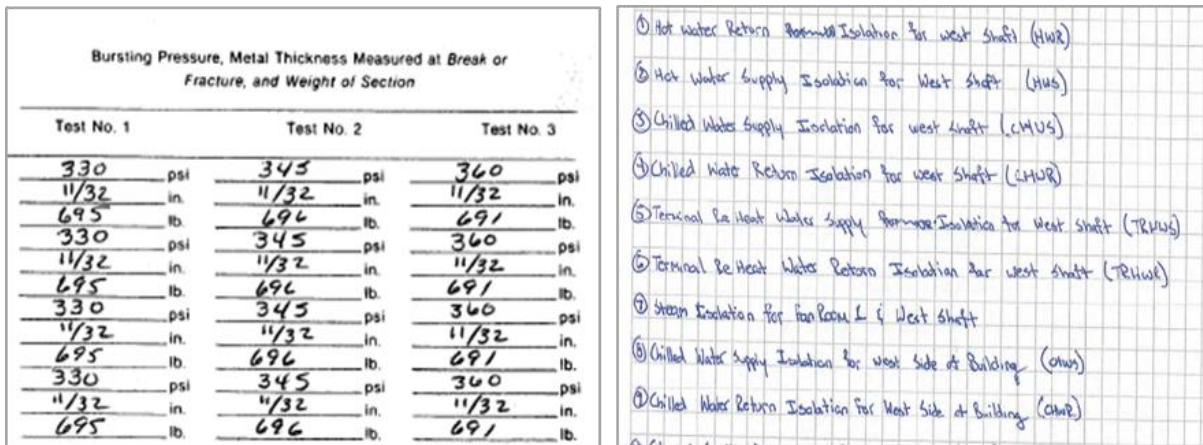 Bursting Pressure, Metal Thickness Measured at Break or
Fracture, and Weight of Section
Test No. 1 Test No. 2 Test No. 3
330 psi 345 psi 360 psi
11/32 in. 11/32 in. 11/32 in.
695 lb. 696 lb. 691 lb.
330 psi 345 psi 360 psi
11/32 in. 11/32 in. 11/32 in.
695 lb. 696 lb. 691 lb.
330 psi 345 psi 360 psi
11/32 in. 11/32 in. 11/32 in.
695 lb. 696 lb. 691 lb.
330 psi 345 psi 360 psi
11/32 in. 11/32 in. 11/32 in.
695 lb. 696 lb. 691 lb.
① Hot Water Return Isolation for West Shaft (HWR)
② Hot Water Supply Isolation for West Shaft (HWS)
③ Chilled Water Supply Isolation for West Shaft (CHWS)
④ Chilled Water Return Isolation for West Shaft (CHWR)
⑤ Terminal Re Heat Water Supply Isolation for West Shaft (TRHWS)
⑥ Terminal Re Heat Water Return Isolation for West Shaft (TRHWR)
⑦ Steam Isolation for Fan Room 1 & West Shaft
⑧ Chilled Water Supply Isolation for West Side of Building (CHWS)
⑨ Chilled Water Return Isolation for West Side of Building (CHWR)